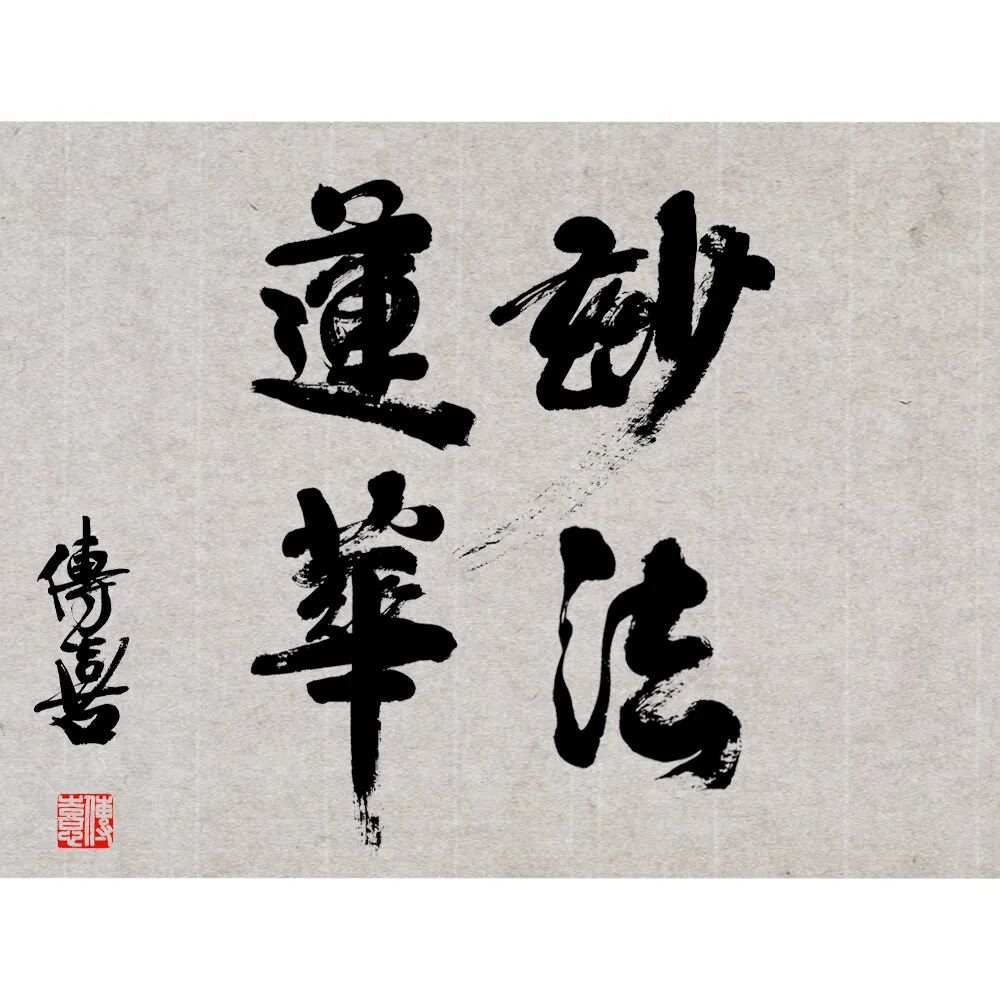 妙法
蓮華
傳喜
傳喜